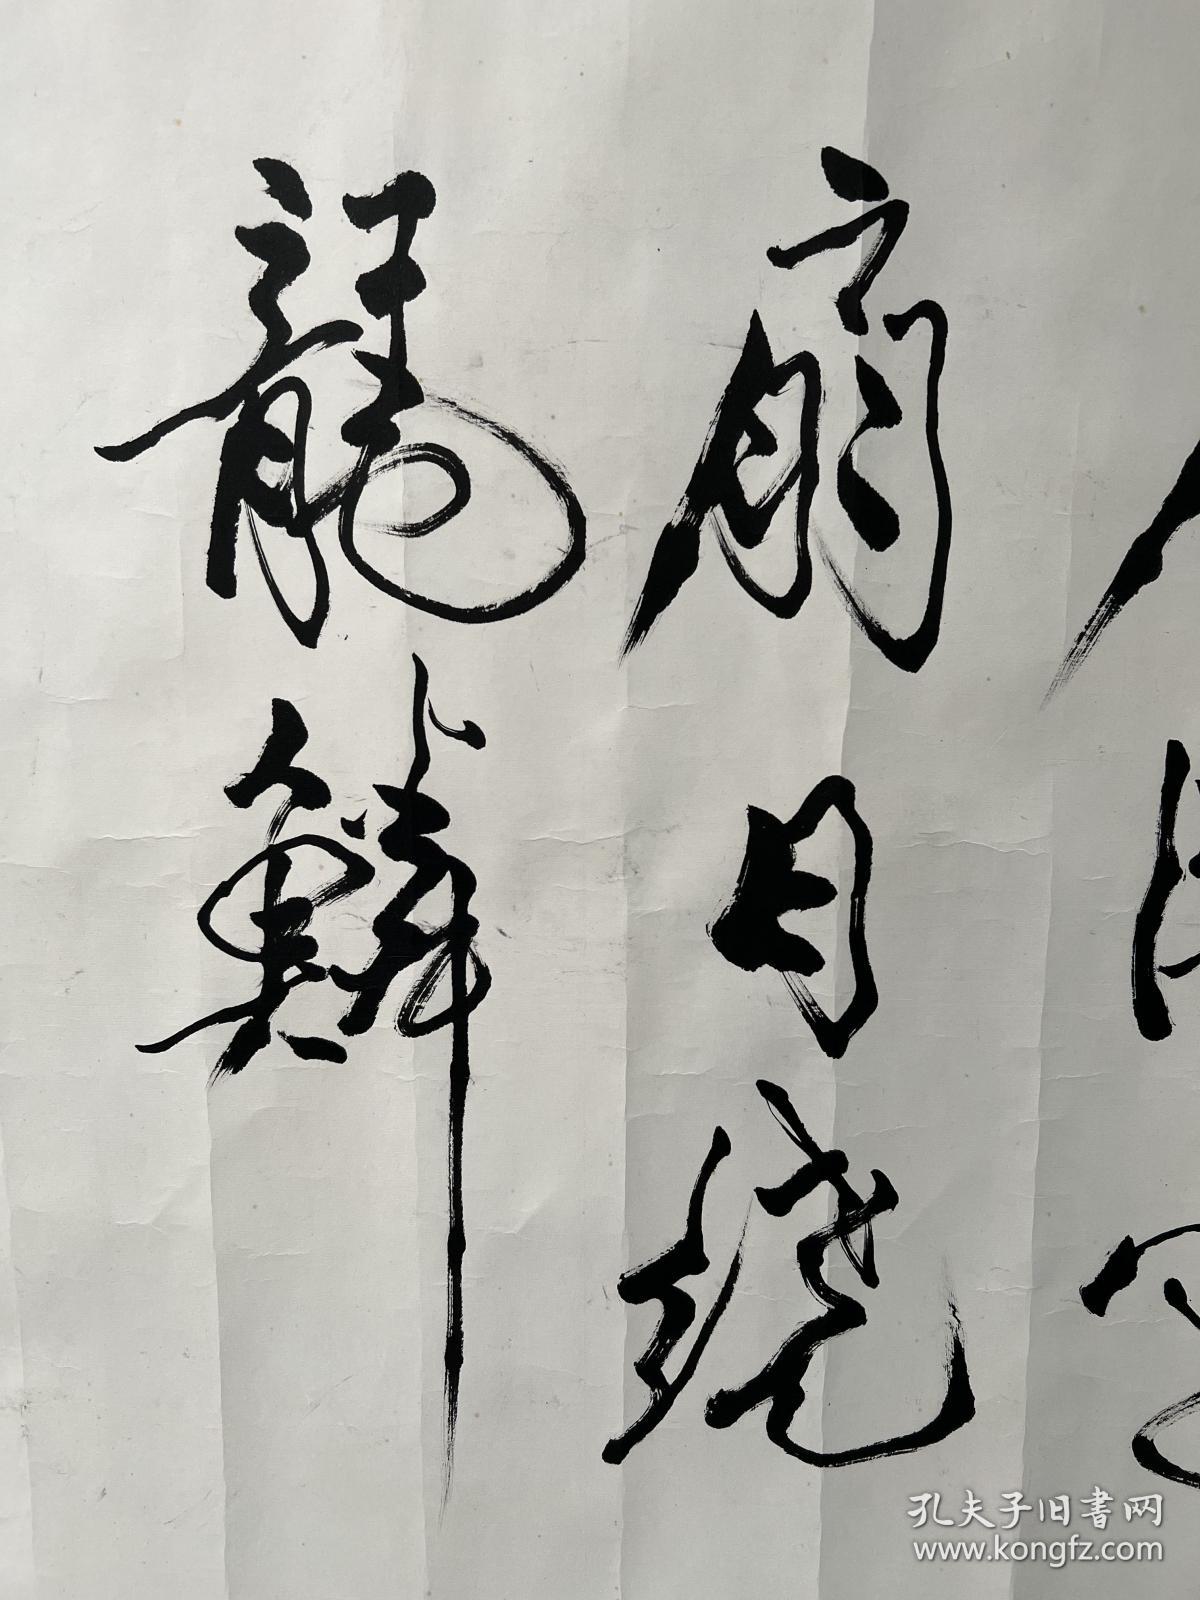 扇日繞
龍鱗
孔夫子旧書网
www.kongfz.com